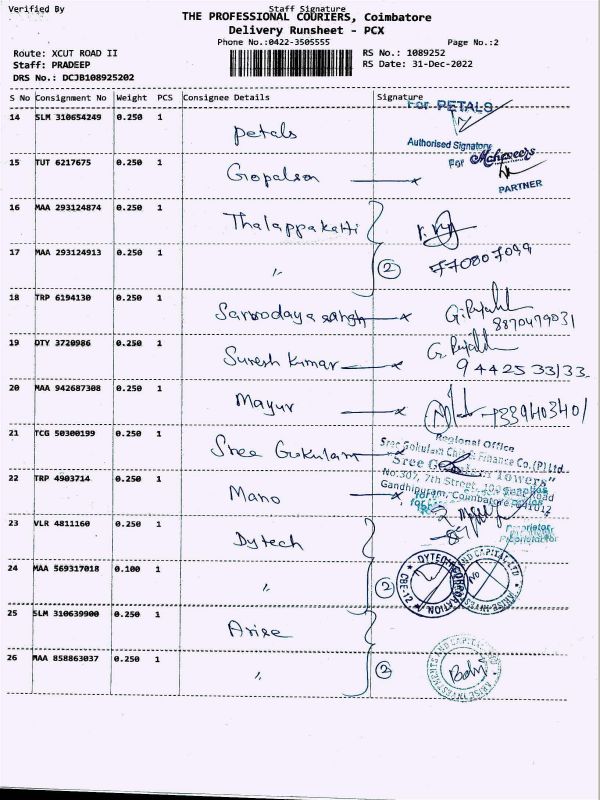 Verified By Staff Signature
THE PROFESSIONAL COURIERS, Coimbatore
Delivery Runsheet - PCX
Phone No.:0422-3505555 Page No.:2
Route: XCUT ROAD II RS No.: 1089252
Staff: PRADEEP RS Date: 31-Dec-2022
DRS No.: DCJB108925202
S No Consignment No Weight PCS Consignee Details Signature
14 SLM 310654249 0.250 1 Petals For PETALS
Authorised Signatory
15 TUT 6217675 0.250 1 Gopalson For
PARTNER
16 MAA 293124874 0.250 1 Thalappakatti
17 MAA 293124913 0.250 1 〃 2 770807099
18 TRP 6194130 0.250 1 Sarvodaya sangh 8870479031
19 DTY 3720986 0.250 1 Suresh Kumar 9442533133
20 MAA 942687308 0.250 1 Mayur 7339403401
21 TCG 50300199 0.250 1 Sree Gokulam Regional Office
Sree Gokulam Chit & Finance Co.(P)Ltd.
"Sree Gokulam Towers"
No:307, 7th Street, 100 Feet Road
Gandhipuram, Coimbatore-641012
22 TRP 4903714 0.250 1 Mano
Proprietor
23 VLR 4811160 0.250 1 Dytech
24 MAA 569317018 0.100 1 〃 2 DYTECH CORPORATION CBE-12
25 SLM 310639900 0.250 1 Arise
26 MAA 858863037 0.250 1 〃 2 ARISE INVESTMENTS AND CAPITAL